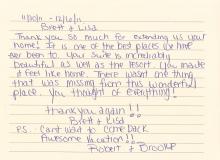 11/30/11 - 12/10/11
Brett + Lisa
Thank you so much for extending us your
home! It is one of the best places we have
ever been to. Your suite is incredibly
beautiful as well as the resort. You made
it feel like home. There wasn't one thing
that was missing from this wonderful
place. You thought of everything!
Thank you again!!
Brett + Lisa
P.S. Can't wait to come back
Awesome Vacation!!
Robert + Brooke